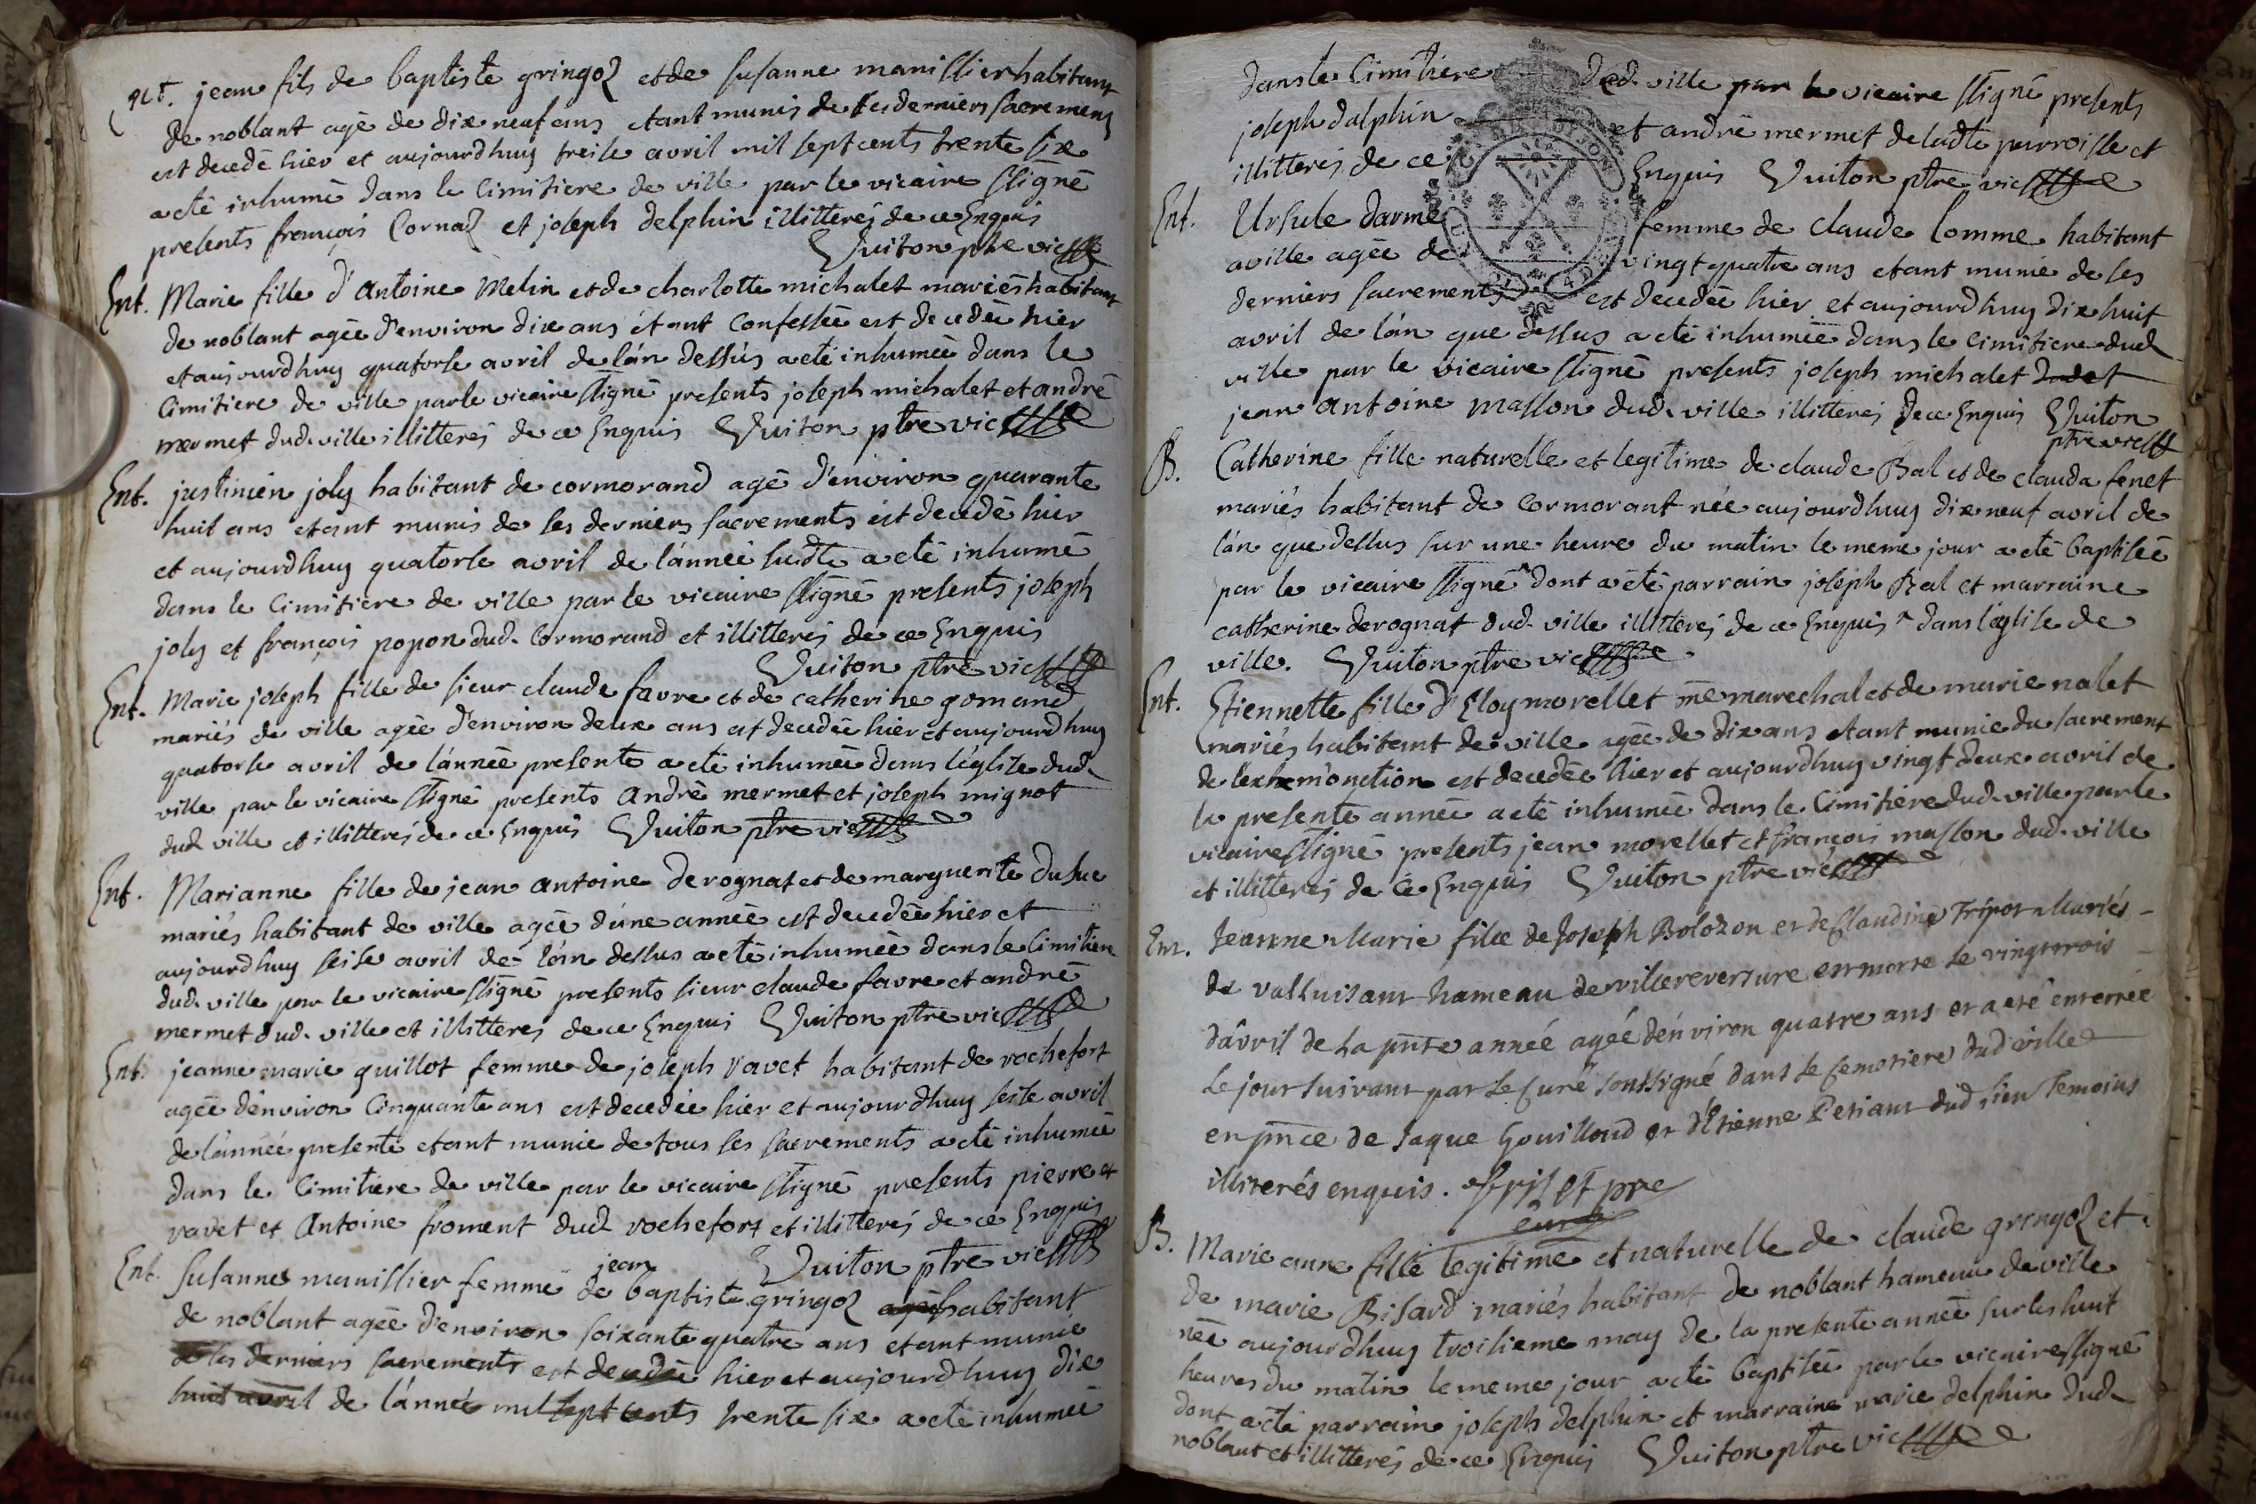 Ent. jean fils de baptiste gringoz et de susanne manissier habitant
de noblant agé de dix neuf ans etant munis de ses derniers sacremens
est decedé hier et aujourdhuy treise avril mil sept cents trente six
a eté inhumé dans le Cimitiere de ville par le vicaire ssigné
presents françois Cornaz et joseph delphin illitterés de ce Enquis
Vuiton ptre vic
Ent. Marie fille d'antoine Melin et de charlotte michalet mariés habitant
de noblant agée d'environ dix ans étant Confessée est decedée hier
et aujourdhuy quatorse avril de l'án dessus a eté inhumée dans le
Cimitiere de ville par le vicaire ssigné presents joseph michalet et andré
mermet dud. ville illitterés de ce Enquis Vuiton ptre vic
Ent. justinien joly habitant de cormorand agé d'environ quarante
huit ans etant munis de ses derniers sacrements est decedé hier
et aujourdhuy quatorse avril de l'année susdte a eté inhumé
dans le Cimitiere de ville par le vicaire ssigné presents joseph
joly et françois popon dud. Cormorand et illitterés de ce Enquis
Vuiton ptre vic
Ent. Marie joseph fille de sieur claude favre et de catherine gomand
mariés de ville agée d'environ deux ans est decedée hier et aujourdhuy
quatorse avril de l'année presente a eté inhumée dans léglise dud.
ville par le vicaire ssigné presents andré mermet et joseph mignot
dud. ville et illitterés de ce Enquis Vuiton ptre vic
Ent. Marianne fille de jean antoine derognat et de marguerite Dusuc
mariés habitant de ville agée dúne année est decedée hier et
aujourdhuy seise avril de l'án dessus a eté inhumée dans le Cimitiere
dud. ville par le vicaire ssigné presents sieur claude favre et andré
mermet dud. ville et illitteres de ce Enquis Vuiton ptre vic
Ent. jeanne marie guillot femme de joseph ravet habitant de rochefort
agée d'environ Cinquante ans est decedée hier et aujourdhuy seise avril
de l'année presente etant munie de tous ses sacrements a eté inhumée
dans le Cimitiere de ville par le vicaire ssigné presents pierre et
ravet et Antoine froment dud. rochefort et illitterés de ce Enquis
Vuiton ptre vic
jean
Ent. Susanne manissier femme de baptiste gringoz agée habitant
de noblant agée d'environ soixante quatre ans etant munie
de ses derniers sacrements est decedée hier et aujourdhuy dix
huit avril de l'année mil sept cents trente six a eté inhumée
dans le Cimitiere dud. ville par le vicaire ssigné presents
joseph dalphin et andré mermet de ladte parroisse et
illitterés de ce Enquis Vuiton ptre vic
Ent. Ursule darme femme de claude Comme habitant
a ville agée de vingt quatre ans etant munie de ses
derniers sacrements est decedée hier et aujourdhuy dix huit
avril de l'án que dessus a eté inhumée dans le Cimitiere dud.
ville par le vicaire ssigné presents joseph michalet dud et
jean antoine masson dud. ville illitterés de ce Enquis Vuiton
ptre vic
B. Catherine fille naturelle et legitime de claude Bal et de clauda fenet
mariés habitant de Cormorant née aujourdhuy dix neuf avril de
l'án que dessus sur une heure du matin le meme jour a eté baptisée
par le vicaire ssigné^ dont a eté parrain joseph Bal et marraine
catherine derognat dud. ville illitterés de ce Enquis ^ dans léglise de
ville. Vuiton ptre vic
Ent. Etiennette fille d'Eloy morellet me marechal et de marie nalet
mariés habitant de ville agée de dix ans etant munie du sacrement
de l'extremonction est decedée hier et aujourdhuy vingt deux avril de
la presente année a eté inhumée dans le Cimitiere dud. ville par le
vicaire ssigné presents jean morellet et françois masson dud. ville
et illitterés de ce Enquis Vuiton ptre vic
Ent. Jeanne Marie fille de Joseph Bolozon et de Claudine Tripot Mariés
de valluisant hameau de villereversure est morte le vingt trois
d'avril de la pnte année agée d'environ quatre ans et a eté enterrée
le jour suivant par le Curé soussigné dans le Cemetiere dud ville
en pnce de Jaque Gouilloud et d'Etienne Petiant dud lieu Temoins
illiterés enquis.
curé
B. Marie anne fille legitime et naturelle de claude gringoz et
de marie Bisard mariés habitant de noblant hameau de ville
née aujourdhuy troisieme may de la presente année sur les huit
heures du matin le meme jour a eté baptisée par le vicaire ssigné
dont a eté parrain joseph delphin et marraine marie delphin dud.
noblant et illitterés de ce Enquis Vuiton ptre vic